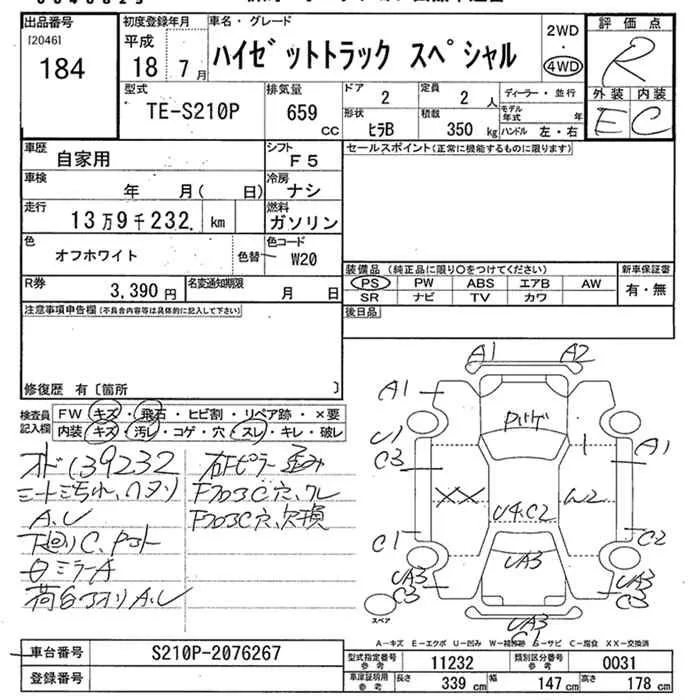 出品番号 初度登録年月 車名・グレード 評価点
[2046] 平成 ハイゼットトラック スペシャル 2WD・4WD R
184 18年 7月
型式 排気量 ドア 定員 ディーラー・並行 外装 内装
TE-S210P 659cc 2 2人 モデル年式 年 E C
形状 積載 ハンドル 左・右
ヒラB 350kg
車歴 自家用 シフト F5 セールスポイント(正常に機能するものに限ります)
車検 年 月( 日) 冷房 ナシ
走行 13万9千232. km 燃料 ガソリン
色 オフホワイト 色替 色コード W20
装備品(純正品に限り○をつけてください) 新車保証書
R券 3,390円 名変通知期限 月 日 PS PW ABS エアB AW 有・無
SR ナビ TV カワ
注意事項申告欄(不具合内容等は具体的に記入して下さい) 後日品
修復歴 有〔箇所 〕
検査員記入欄 FW キズ・飛石・ヒビ割・リペア跡・×要
内装 キズ・汚レ・コゲ・穴・スレ・キレ・破レ
オド139232 右Fピラー歪み
シート汚れ、ヘタリ FフロアC穴、クレ
A.U FフロアC穴、欠損
下廻りC、
ミラーA
荷台アオリA.U
A1 A2
A1
U1 A1
C3
XX W2
U4.C2
C1 C2
UA3 UA3 UA3
C3 C3
UA3
C1
スペア
A-キズ E-エクボ U-凹み W-補修跡 S-サビ C-腐食 XX-交換済
車台番号 S210P-2076267 型式指定番号参考 11232 類別区分番号参考 0031
登録番号 車庫証明用参考 長さ 339cm 幅 147cm 高さ 178cm